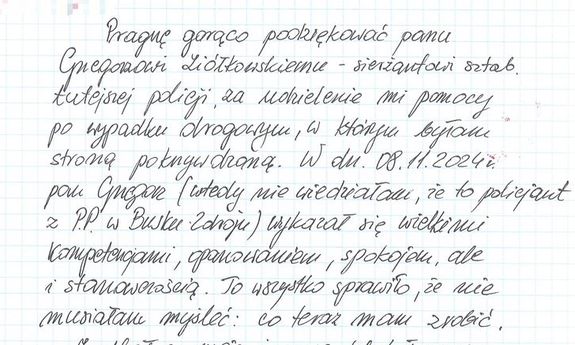 Pragnę gorąco podziękować panu
Grzegorzowi Ziółkowskiemu - sierżantowi sztab.
tutejszej policji, za udzielenie mi pomocy
po wypadku drogowym, w którym byłam
stroną pokrzywdzoną. W dn. 08.11.2024r.
pan Grzegorz (wtedy nie wiedziałam, że to policjant
z P.P. w Busku-Zdroju) wykazał się wielkimi
kompetencjami, opanowaniem, spokojem, ale
i stanowczością. To wszystko sprawiło, że nie
musiałam myśleć: co teraz mam zrobić.